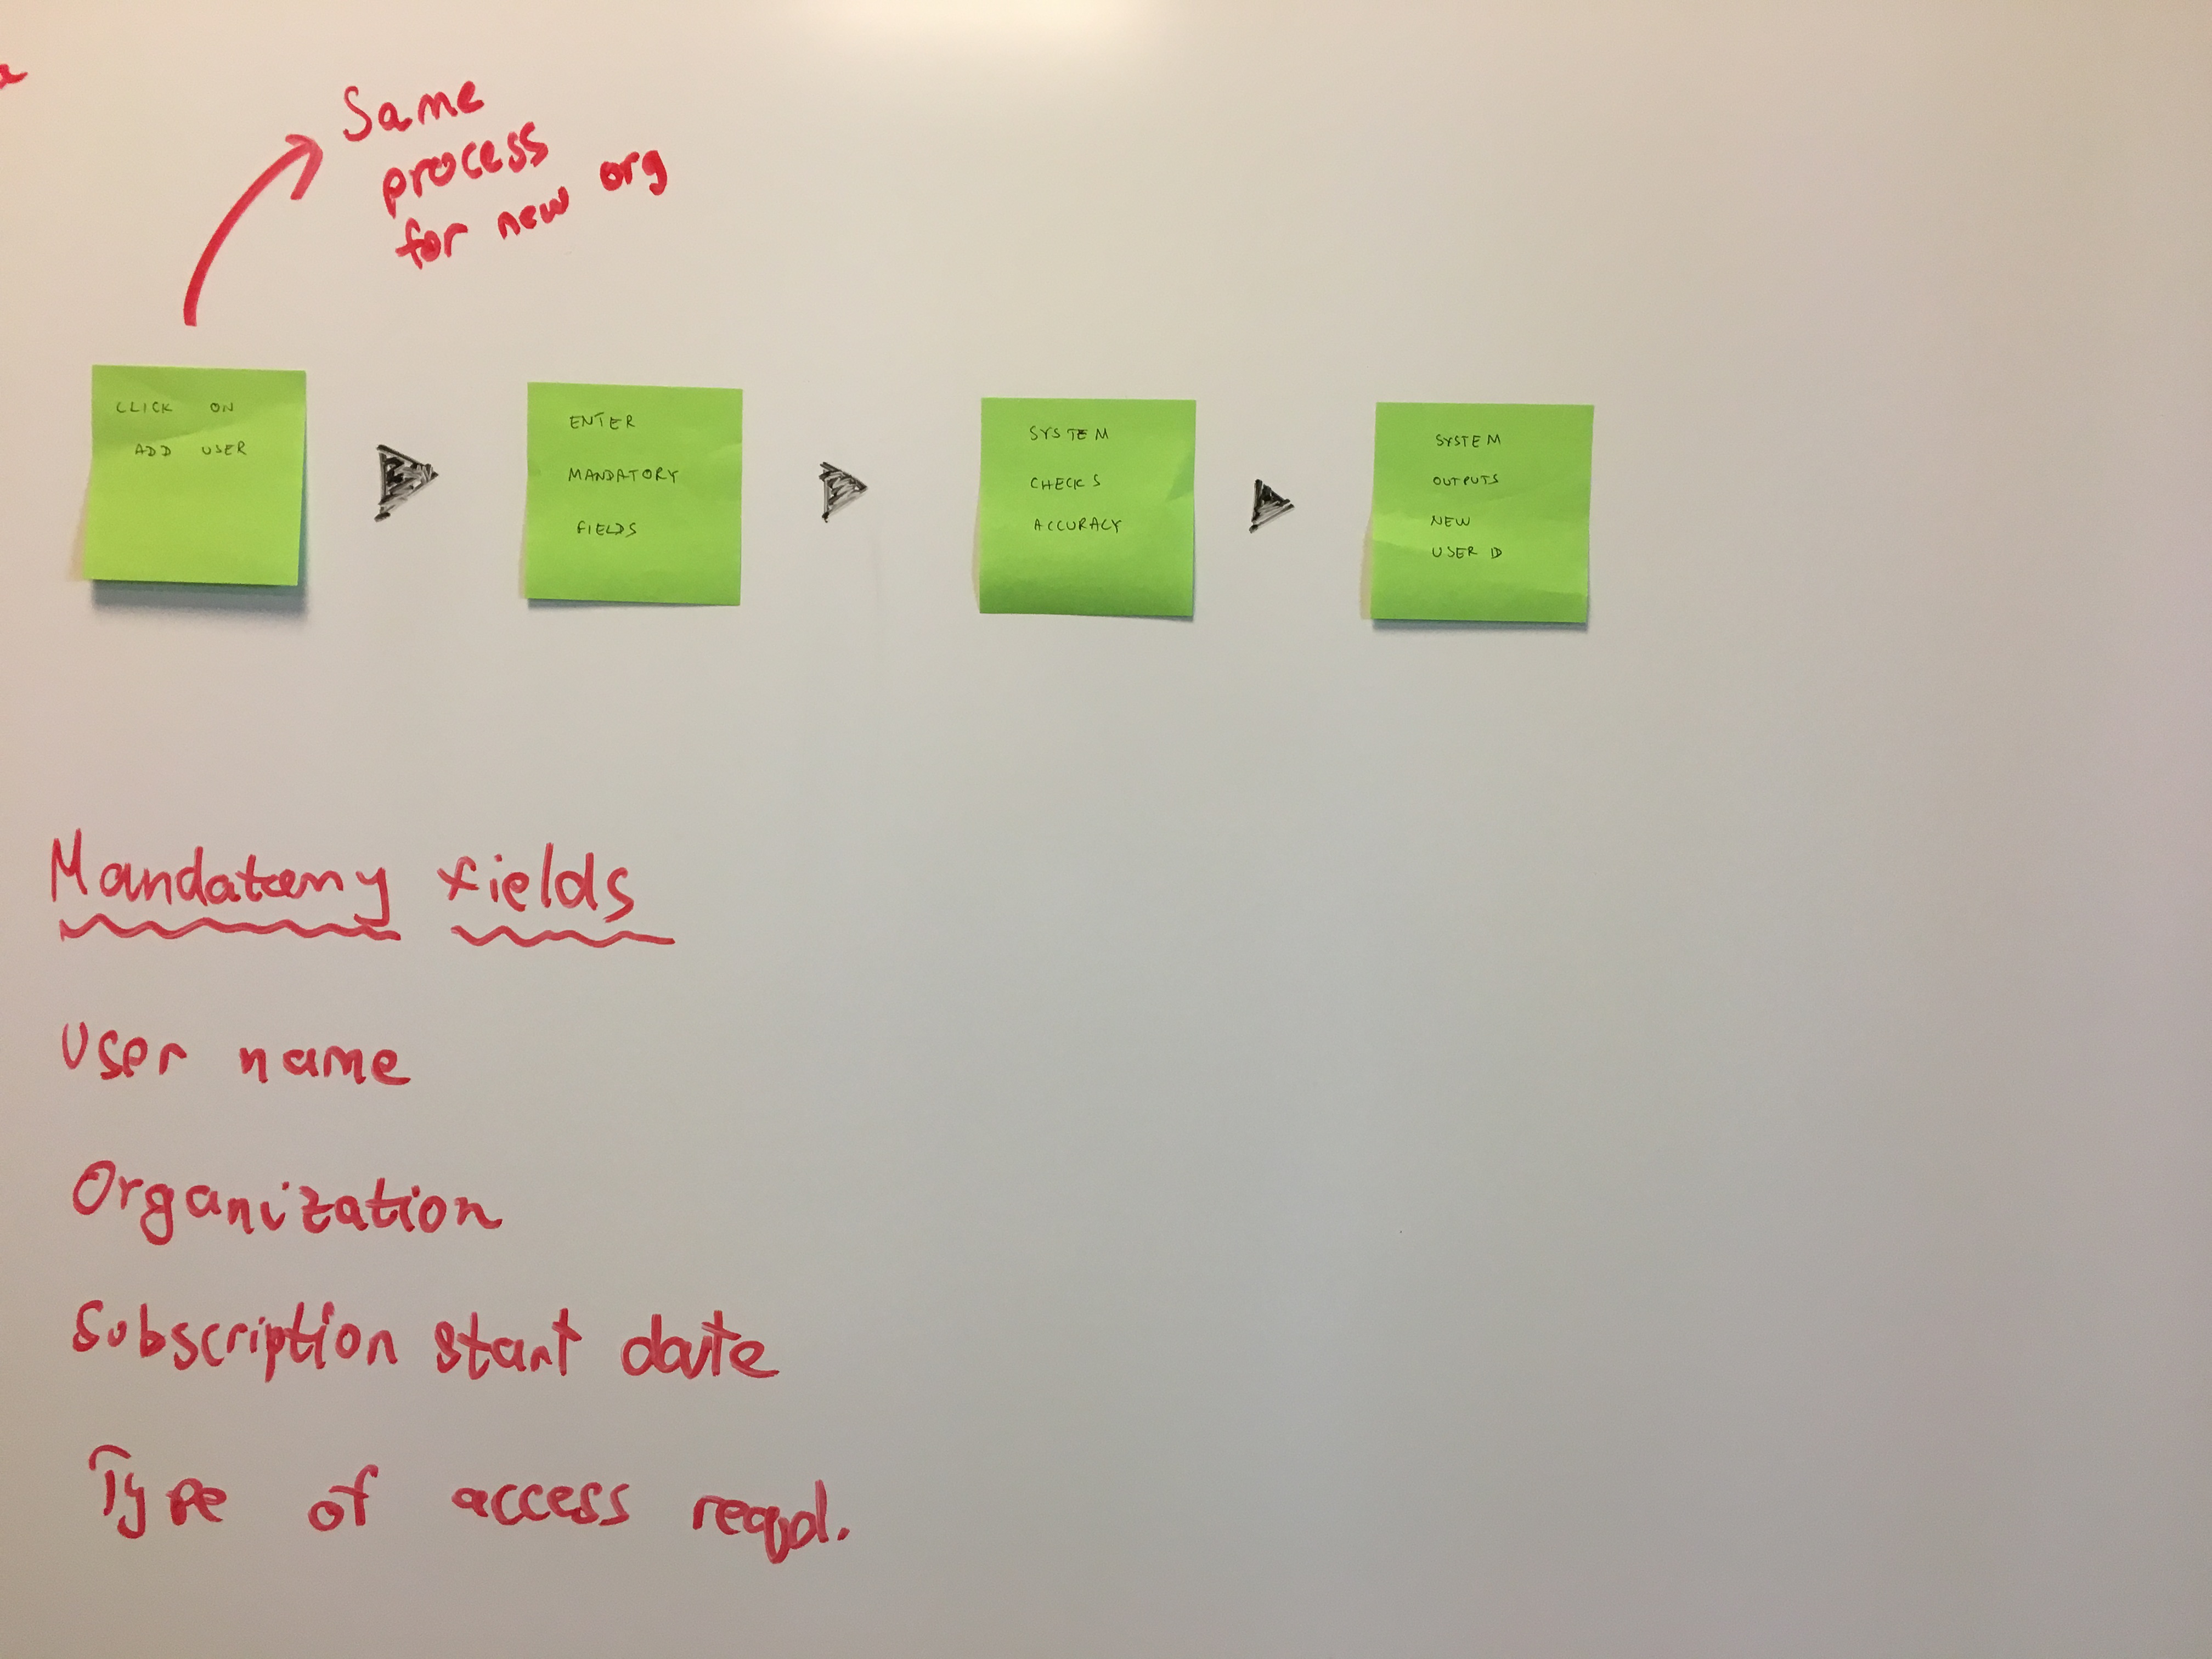 Same
process
for new org
CLICK ON
ADD USER
ENTER
MANDATORY
FIELDS
SYSTEM
CHECKS
ACCURACY
SYSTEM
OUTPUTS
NEW
USER ID
Mandatory fields
User name
Organization
Subscription start date
Type of access reqd.